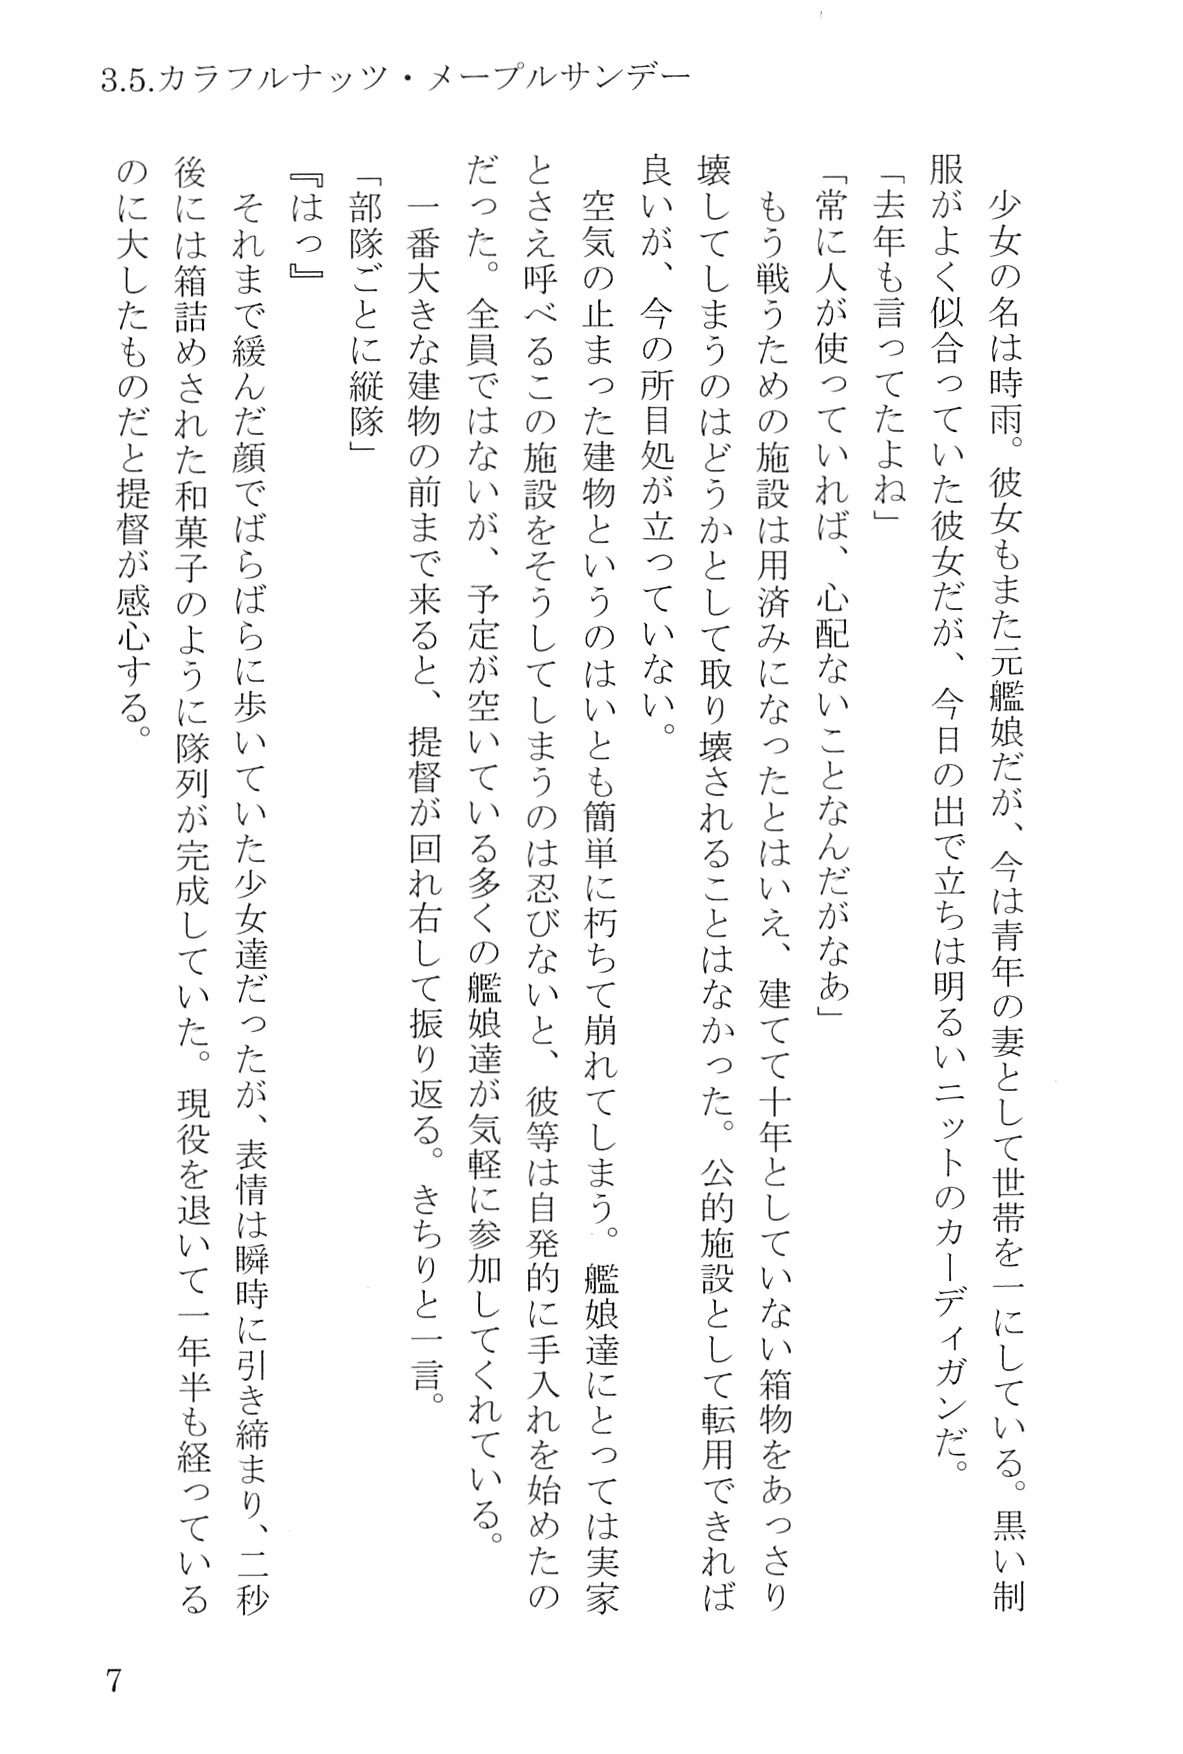 3.5.カラフルナッツ・メープルサンデー
　少女の名は時雨。彼女もまた元艦娘だが、今は青年の妻として世帯を一にしている。黒い制
服がよく似合っていた彼女だが、今日の出で立ちは明るいニットのカーディガンだ。
「去年も言ってたよね」
「常に人が使っていれば、心配ないことなんだがなあ」
　もう戦うための施設は用済みになったとはいえ、建てて十年としていない箱物をあっさり
壊してしまうのはどうかとして取り壊されることはなかった。公的施設として転用できれば
良いが、今の所目処が立っていない。
　空気の止まった建物というのはいとも簡単に朽ちて崩れてしまう。艦娘達にとっては実家
とさえ呼べるこの施設をそうしてしまうのは忍びないと、彼等は自発的に手入れを始めたの
だった。全員ではないが、予定が空いている多くの艦娘達が気軽に参加してくれている。
　一番大きな建物の前まで来ると、提督が回れ右して振り返る。きちりと一言。
「部隊ごとに縦隊」
『はっ』
　それまで緩んだ顔でばらばらに歩いていた少女達だったが、表情は瞬時に引き締まり、二秒
後には箱詰めされた和菓子のように隊列が完成していた。現役を退いて一年半も経っている
のに大したものだと提督が感心する。
7